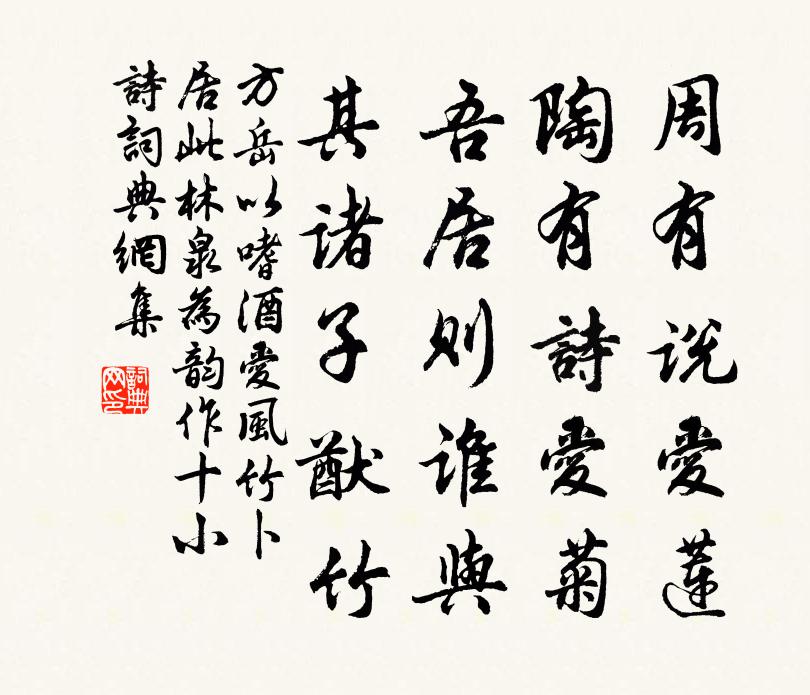 周有说愛蓮
陶有詩愛菊
吾居则誰與
其诸子猷竹
方岳以嗜酒愛風竹卜
居此林泉為韵作十小
詩詞典網集
詞典网印